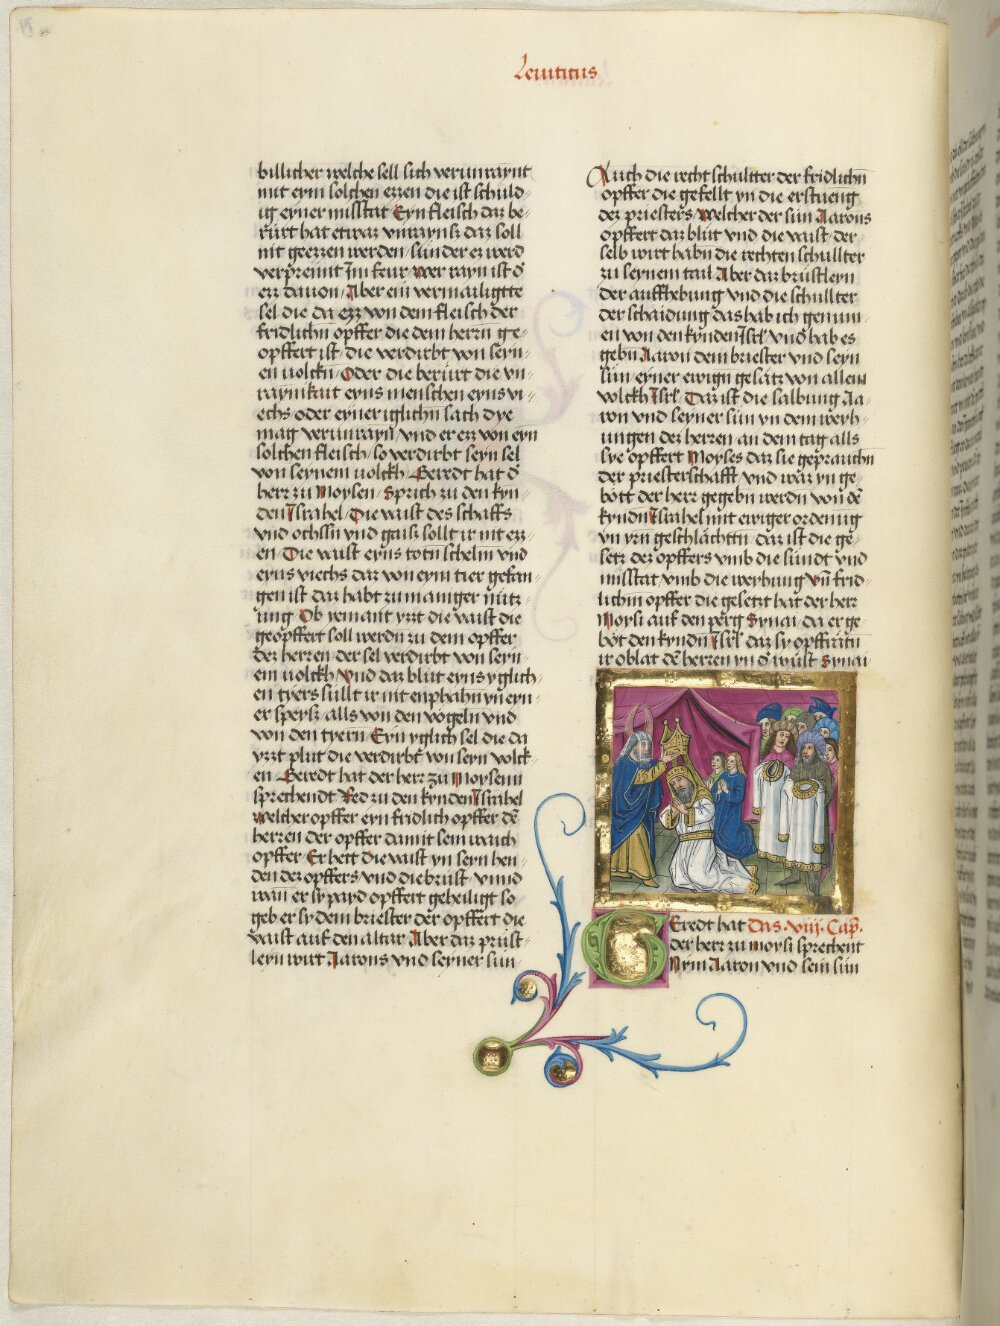 Leuiticus
billicher welche sell sich verunraynt
mit eym solchen ezzen die ist schuld-
ig eyner misstat Eyn fleisch daz be-
rürt hat etwaz vnraynß daz soll
nit geezzen werden sunder ez werd
verprennt Im feur wer rayn ist d
ezz dauon Aber ein vermailigtte
sel die da ezz von dem fleisch der
fridlichn opffer die dem herrn ge-
opffert ist die verdirbt von seyn-
en volckn Oder die berürt die vn
raynikait eyns menschen eyns vi-
echs oder eyner iglichn sach dye
mag verunrayn vnd er ez von eyn
solchen fleisch so verdirbt seyn sel
von seynem volckh Geredt hat d
herr zu Moysen Sprich zu den kyn
den Israhel Die vaist des schaffs
vnd ochssn vnd gaiß sollt ir nit ezz-
en Die vaist eyns totn schelm vnd
eyns viechs daz von eym tier gefan-
gen ist daz habt zu maniger nütz-
ung Ob yemant yzzt die vaist die
geopffert soll werdn zu dem opffer
dez herren der sel verdirbt von seyn-
em volckh Vnd daz blut eyns yglich-
en tyers sullt ir nit enphahn yn eyn-
er speyß alls von den vogeln vnd
von den tyern Eyn yglich sel die da
yzzt plut die verdirbt von seyn volck-
en Geredt hat der herr zu Moysenn
sprechendt Red zu den kynden Israhel
Welcher opffer eyn fridlich opffer de
herren der opffer damit sein waich
opffer Er hett die vaist yn seyn hen-
den dez opffers vnd die brust vnnd
wan er sy payd opffert geheiligt so
geb er sy dem briester der opffert die
vaist auf den altar Aber daz prust-
leyn wirt Aarons vnd seyner sun
Auch die recht schultter der fridlichn
opffer die gefellt yn die erstueng
dez priesters Welcher der sün Aarons
opffert daz blüt vnd die vaist der-
selb wirt habn die rechten schullter
zu seynem tail Aber daz brüstleyn
der auffhebung vnd die schullter
der schaidung das hab ich genum-
en von den kynden Isrl vnd hab es
gebn Aaron dem briester vnd seyn
sün eyner ewign gesatz von allem
volckh Isrl Daz ist die salbung Aa-
ron vnd seyner sün yn dem weyh-
ungen dez herren an dem tag alls
sye opffert Moyses daz sie geprauchn
der priesterschafft vnd waz yn ge-
bott der herr gegebn werdn von de
kyndn Israhel mit ewiger ordenug
yn yrn geschlächttn daz ist die ge-
setz dez opffers vmb die sündt vnd
misstat vmb die weyhung vn frid-
lichm opffer die gesetzt hat der herr
Moysi auf den perg Synai da er ge-
bot den kyndn Isrl daz sy opffratn
ir oblat de herren yn d wüst Synai
Geredt hat Das .viij. Cap.
der herr zu moysi sprechent
Nym Aaron vnd sein sün